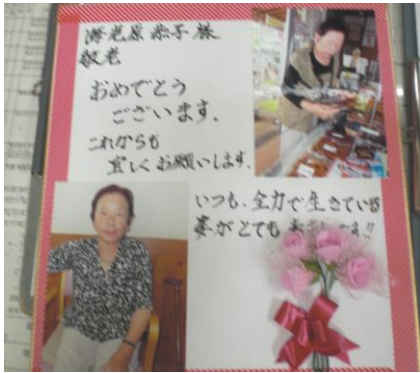 海老原恭子様
敬老
おめでとう
ございます.
これからも
宜しくお願いします.
いつも、全力で生きている
姿がとても